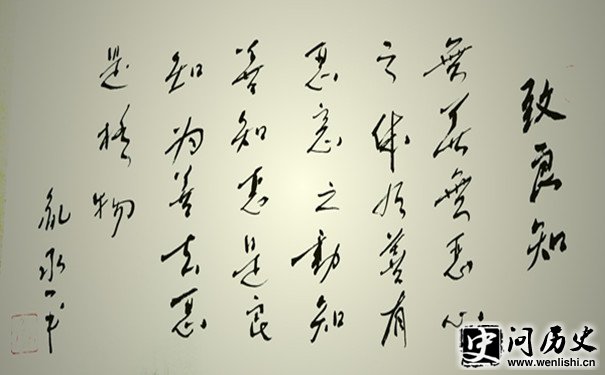 致良知
無善無惡心
之体有善有
惡意之動知
善知惡是良
知为善去惡
是格物
史 问历史
www.wenlishi.cn